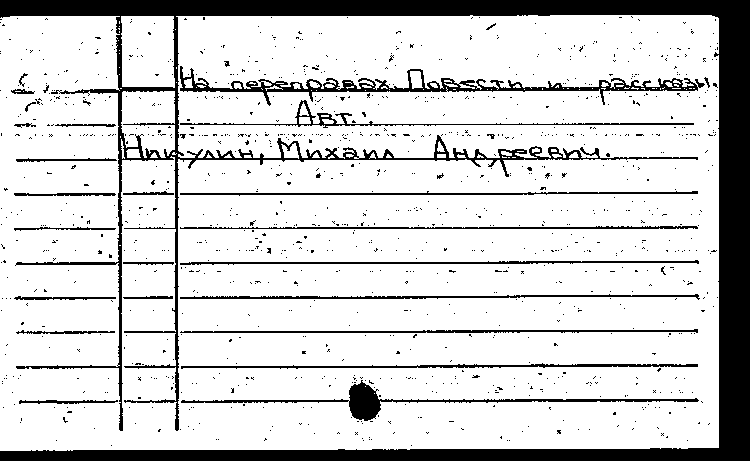 На переправах. Повести и рассказы.
Авт.:
Никулин, Михаил Андреевич.